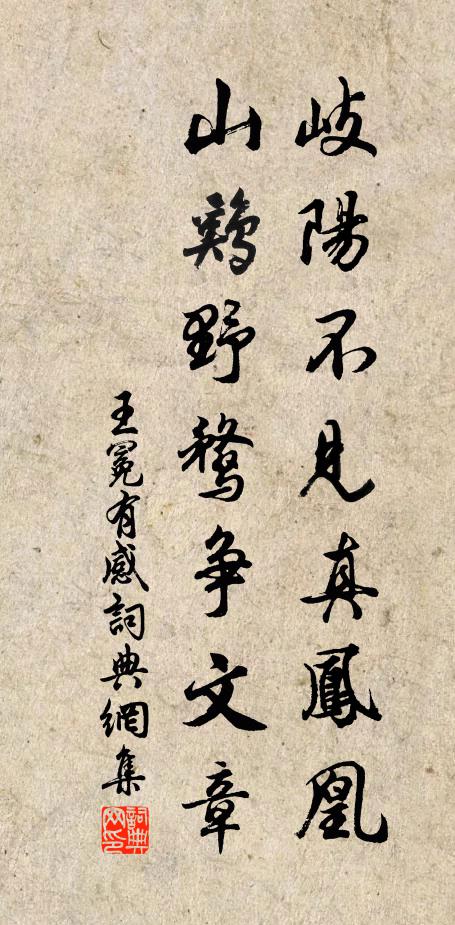 岐陽不見真鳳凰
山鷄野鶩争文章
王冕有感詞典網集
詞典網印